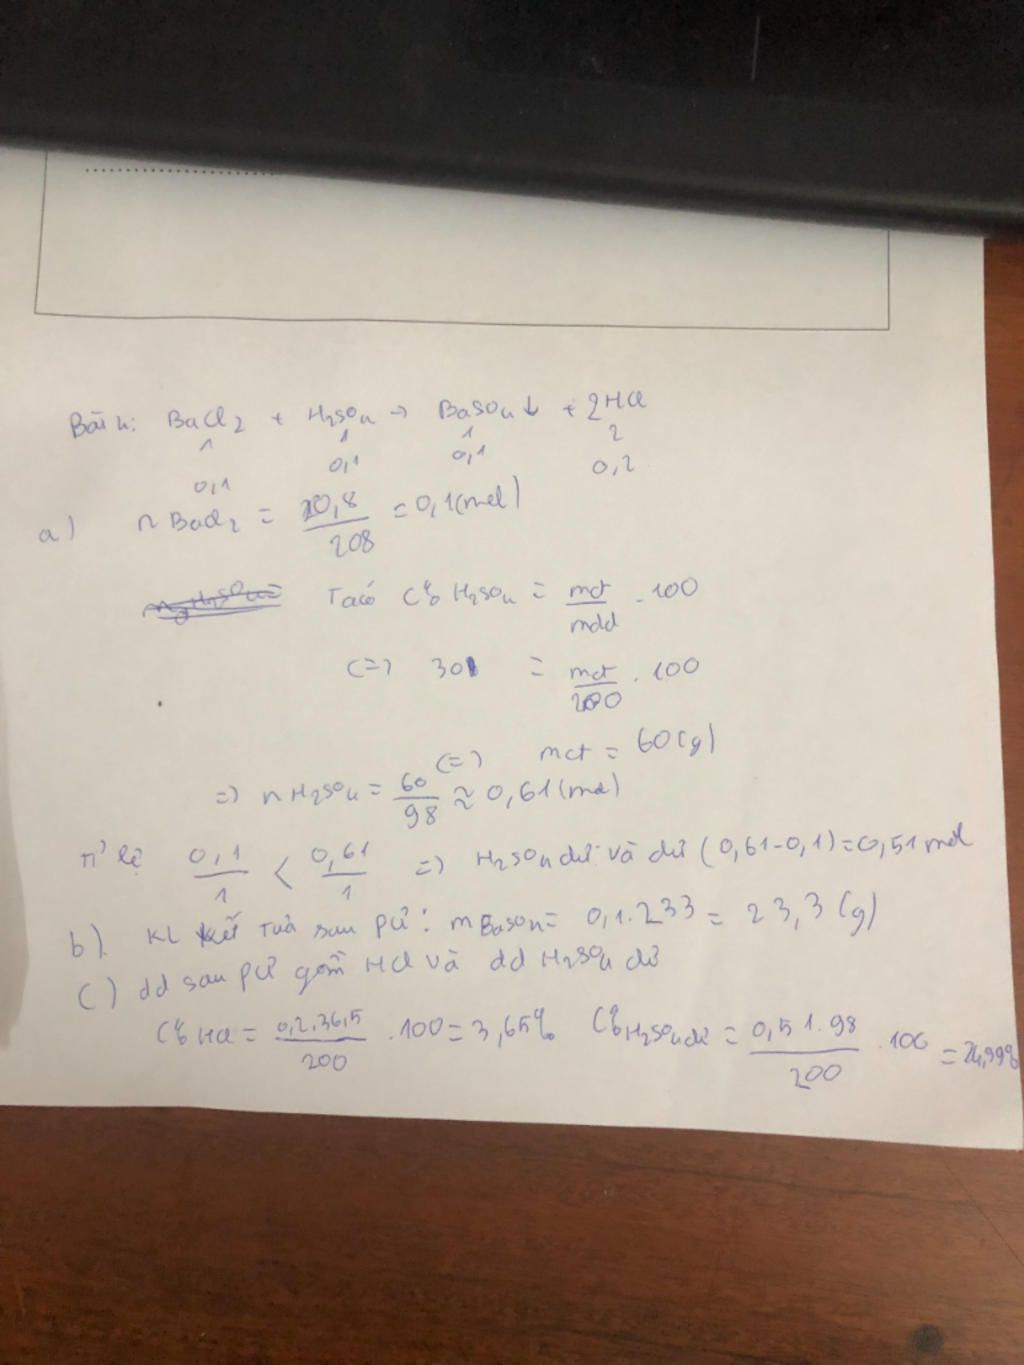 Bài 4: BaCl2 + H2SO4 → BaSO4 ↓ + 2HCl
1 1 1 2
0,1 0,1 0,1 0,2
a) n BaCl2 = 20,8 / 208 = 0,1 (mol)
Ta có C% H2SO4 = mct / mdd . 100
(=) 30 = mct / 200 . 100
(=) mct = 60 (g)
=) n H2SO4 = 60 / 98 ≈ 0,61 (mol)
Tỉ lệ 0,1 / 1 < 0,61 / 1 =) H2SO4 dư và dư (0,61-0,1) = 0,51 mol
b). KL kết tủa sau pứ: m BaSO4 = 0,1.233 = 23,3 (g)
c) dd sau pứ gồm HCl và dd H2SO4 dư
C% HCl = 0,2.36,5 / 200 . 100 = 3,65% C% H2SO4 dư = 0,51.98 / 200 . 100 = 24,99%